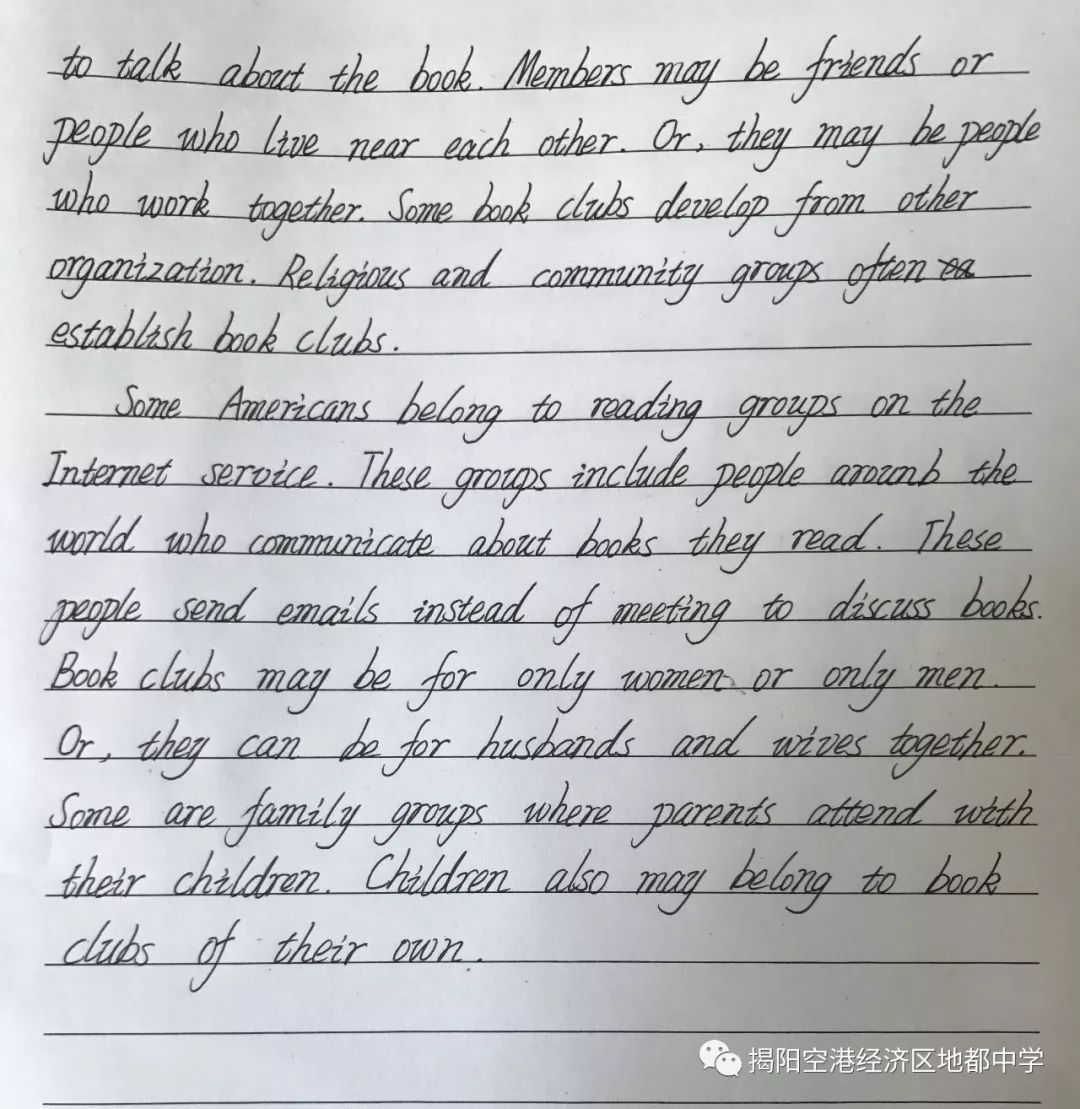 to talk about the book. Members may be friends or
people who live near each other. Or, they may be people
who work together. Some book clubs develop from other
organization. Religious and community groups often ea
establish book clubs.
Some Americans belong to reading groups on the
Internet service. These groups include people arounb the
world who communicate about books they read. These
people send emails instead of meeting to discuss books.
Book clubs may be for only women or only men.
Or, they can be for husbands and wives together.
Some are family groups where parents attend with
their children. Children also may belong to book
clubs of their own.
揭阳空港经济区地都中学